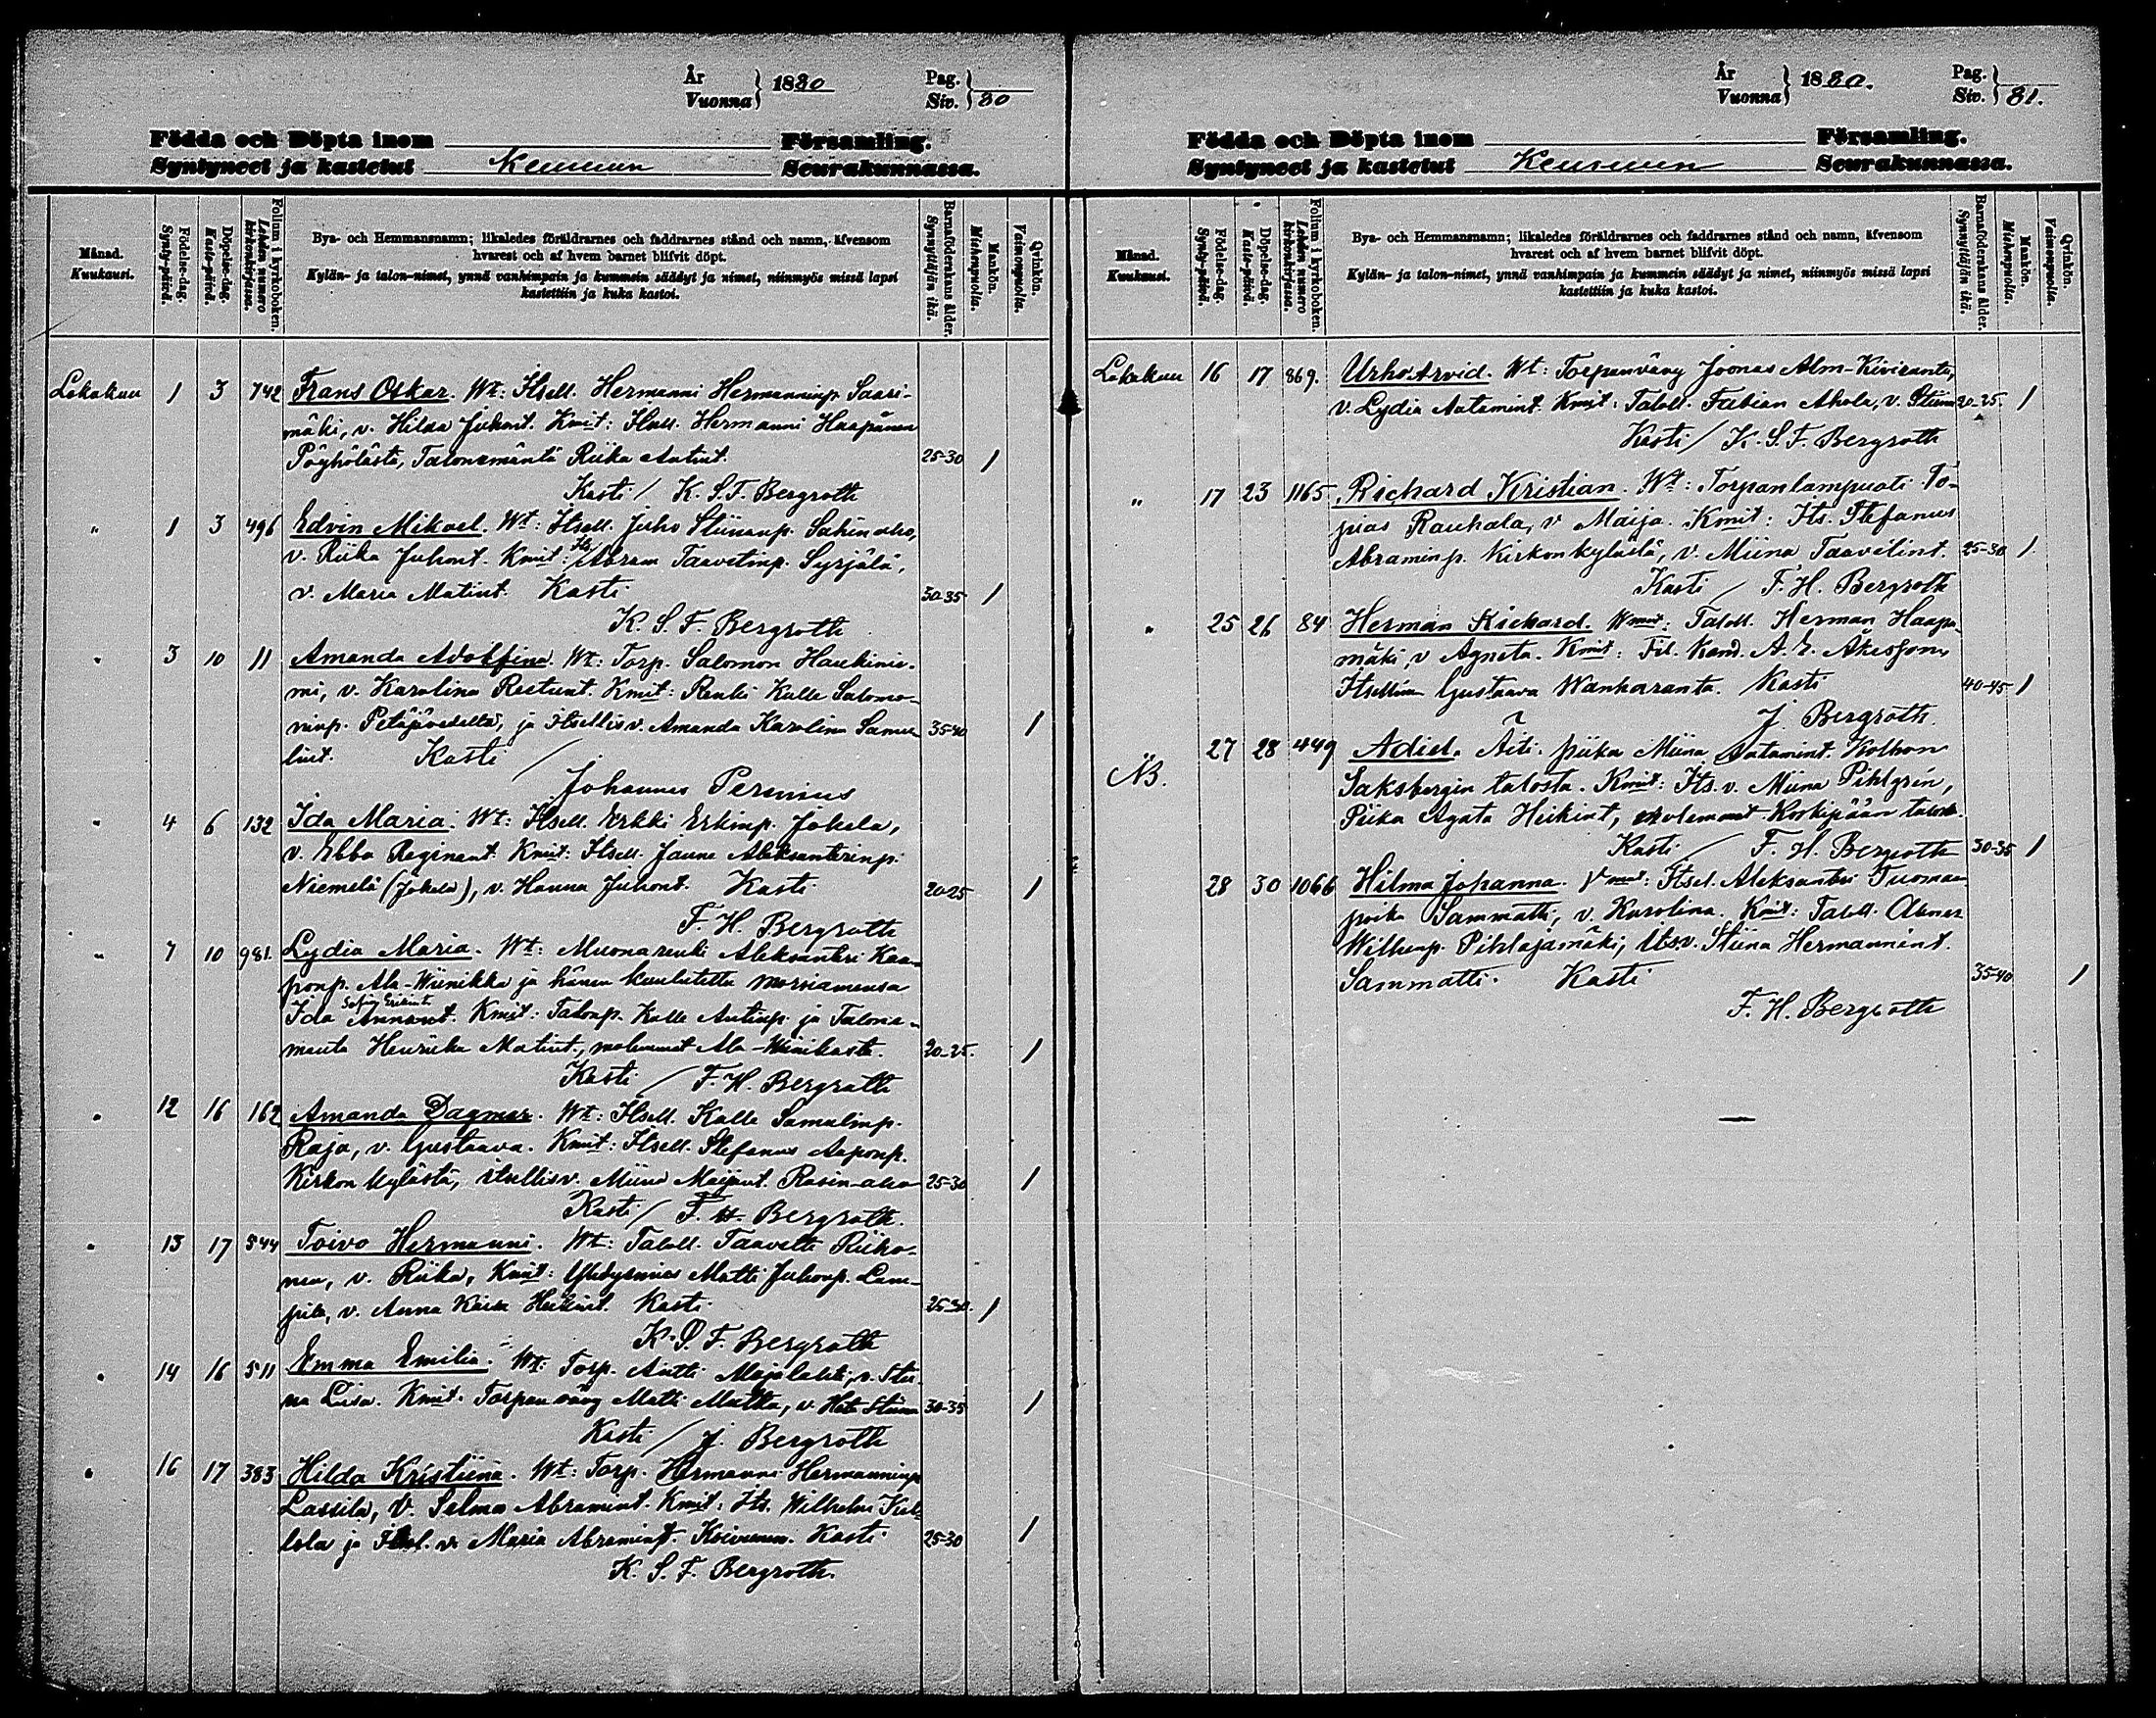 År
Vuonna } 1880
Pag.
Siv. } 80
Födda och Döpta inom Församling.
Syntyneet ja kastetut Keuruun Seurakunnassa.
Månad.
Kuukausi.
Födelse-dag.
Synty-päivä.
Döpelse-dag.
Kaste-päivä.
Folium i kyrkoboken.
Lehden numero kirkonkirjassa.
Bya- och Hemmansnamn; likaledes föräldrarnes och faddrarnes stånd och namn, äfvensom
hvarest och af hvem barnet blifvit döpt.
Kylän- ja talon-nimet, ynnä vanhimpain ja kummein säädyt ja nimet, niinmyös missä lapsi
kastettiin ja kuka kastoi.
Barnaföderskans ålder.
Synnyttäjän ikä.
Mankön.
Miehenpuolia.
Qvinkön.
Vaimonpuolia.
Lokakuu 1 3 742 Frans Oskar. Wt: Itsell. Hermanni Hermanninp. Saari-
mäki, v. Hilda Juhont. Kmit: Itsell. Hermanni Haapanen
Pöyhölästä, Talonemäntä Riika Antint. 25-30 1
Kasti / K. S. F. Bergroth
" 1 3 496 Edvin Mikael. Wt: Itsell. Juho Stiinanp. Sahinaho,
v. Riika Juhont. Kmit: Its. Abram Taavetinp. Syrjälä,
v. Maria Matint. Kasti 30-35 1
K. S. F. Bergroth
" 3 10 11 Amanda Adolfina. Wt: Torp. Salomon Haukinie-
mi, v. Karolina Kmit: Renki Kalle Salomo-
ninp. Petäjävedeltä, ja Itsellisv. Amanda Karolina Samue- 35-40 1
lint. Kasti /
Johannes Perenius
" 4 6 132 Ida Maria. Wt: Itsell. Erkki Erkinp. Jokela,
v. Ebba Reginant. Kmit: Itsell. Janne Aleksanterinp.
Niemelä (Jokela), v. Hanna Juhont. Kasti 20-25 1
F. H. Bergroth
" 7 10 981. Lydia Maria. Wt: Muonarenki Aleksanteri Kaa-
ponp. Ala-Wiinikka ja hänen kuulutettu morsiamensa
Sofia Erikint.
Ida Annant. Kmit: Talonp. Kalle Antinp. ja Talone-
mäntä Henrika Matint., molemmat Ala-Wiinikasta. 20-25. 1
Kasti / F. H. Bergroth
" 12 16 162 Amanda Dagmar. Wt: Itsell. Kalle Samulinp.
Raja, v. Gustaava. Kmit: Itsell. Stefanus Aaponp.
Kirkonkylästä, itsellisv. Miina Maijant. Rasin-aho 25-30 1
Kasti / F. H. Bergroth.
" 13 17 544 Toivo Hermanni. Wt: Taloll. Taavetti Riiho-
nen, v. Riika, Kmit: Yhtysmies Matti Juhonp. Lam-
pila, v. Anna Kaisa Heikint. Kasti 25-30. 1
K. S. F. Bergroth
" 14 16 511 Emma Emilia. Wt: Torp. Antti Majalahti, v. Stii-
na Liisa. Kmit. Torpanvävy Matti Mutka, v. Stiina 30-35 1
Kasti / J. Bergroth
" 16 17 383 Hilda Kristiina. Wt: Torp. Hermanni Hermanninp.
Lassila, v. Selma Abramint. Kmit: Its. Wilhelm
lola ja Itsel. v. Maria Abramint. Koivunen. Kasti 25-30 1
K. S. F. Bergroth.
År
Vuonna } 1880.
Pag.
Siv. } 81.
Födda och Döpta inom Församling.
Syntyneet ja kastetut Keuruun Seurakunnassa.
Månad.
Kuukausi.
Födelse-dag.
Synty-päivä.
Döpelse-dag.
Kaste-päivä.
Folium i kyrkoboken.
Lehden numero kirkonkirjassa.
Bya- och Hemmansnamn; likaledes föräldrarnes och faddrarnes stånd och namn, äfvensom
hvarest och af hvem barnet blifvit döpt.
Kylän- ja talon-nimet, ynnä vanhimpain ja kummein säädyt ja nimet, niinmyös missä lapsi
kastettiin ja kuka kastoi.
Barnaföderskans ålder.
Synnyttäjän ikä.
Mankön.
Miehenpuolia.
Qvinkön.
Vaimonpuolia.
Lokakuu 16 17 869. Urho Arvid. Wt: Torpanvävy Joonas Alm-Kiviranta,
v. Lydia Aatamint. Kmit: Taloll. Fabian Ahola, v. Stiina 20-25. 1
Kasti / K. S. F. Bergroth
" 17 23 1165 Richard Kristian. Wt: Torpanlampuoti To-
pias Rauhala, v Maija. Kmit: Its. Stefanus
Abraminp. Kirkonkylästä, v. Miina Taavetint. 25-30 1.
Kasti / F. H. Bergroth
" 25 26 84 Herman Rickard. Wmat: Taloll. Herman Haapa-
mäki, v Agneta. Kmit: Fil. Kand. A. E. Åkesson,
Itsellinen Gustaava Wanharanta. Kasti 40-45 1
J. Bergroth.
NB. 27 28 449 Adiel. Äiti. piika Miina Aatamint. Kolhon
Saksbergin talosta. Kmit: Its. v. Miina Pihlgrén,
Piika Agata Heikint, molemmat Korkipään talosta.
Kasti / F. H. Bergroth 30-35 1
28 30 1066 Hilma Johanna. Vmat: Itsel. Aleksanteri Tuomaan
poika Sammatti, v. Karolina. Kmit: Taloll. Abner
Willenp. Pihlajamäki, Its v. Stiina Hermannint.
Sammatti. Kasti 35-40 1
F. H. Bergroth